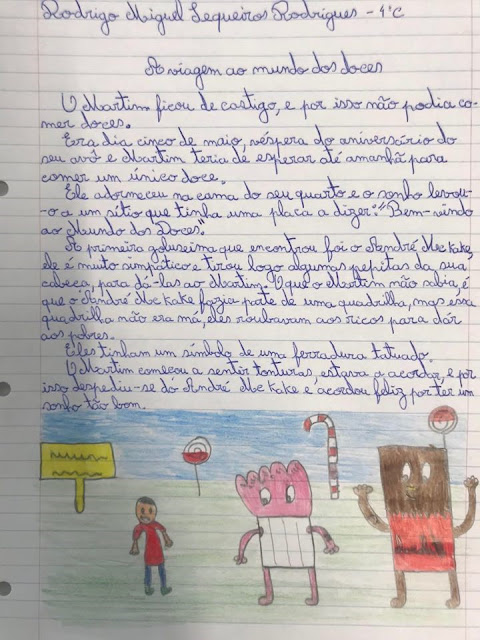 Rodrigo Miguel Sequeiros Rodrigues - 4ºC
A viagem ao mundo dos doces
O Martim ficou de castigo, e por isso não podia co-
mer doces.
Era dia cinco de maio, véspera do aniversário do
seu avô e Martim teria de esperar até amanhã para
comer um único doce.
Ele adormeceu na cama do seu quarto e o sonho levou-
-o a um sítio que tinha uma placa a dizer: "Bem-vindo
ao Mundo dos Doces".
A primeira guloseima que encontrou foi o André Mc kake,
ele é muito simpático e tirou logo algumas pepitas da sua
cabeça, para dá-las ao Martim. O que o Martim não sabia, é
que o André Mc kake fazia parte de uma quadrilha, mas essa
quadrilha não era má, eles roubavam aos ricos para dár
aos pobres.
Eles tinham um símbolo de uma ferradura tatuado.
O Martim começou a sentir tonturas, estava a acordar, e por
isso despediu-se do André Mc kake e acordou feliz por ter um
sonho tão bom.